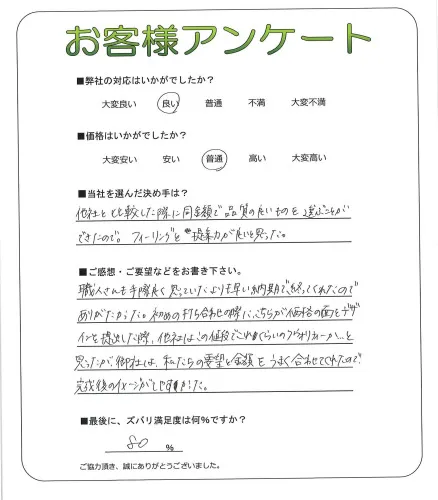 お客様アンケート
■弊社の対応はいかがでしたか?
大変良い 良い 普通 不満 大変不満
■価格はいかがでしたか?
大変安い 安い 普通 高い 大変高い
■当社を選んだ決め手は?
他社と比較した際に同金額で品質の良いものを選ぶことが
できたので。フィーリングと提案力が良いと思った。
■ご感想・ご要望などをお書き下さい。
職人さんも手際良く思っていたよりも早い納期で、終ってくれたので
ありがたかった。初めの打ち合わせの際に、こちらが価格の面とデザ
インを提出した際、他社はこの値段でこれくらいのクオリティーか…と
思ったが、御社は、私たちの要望と金額をうまく合わせてくれたので、
完成後のイメージがしやすかった。
■最後に、ズバリ満足度は何%ですか?
80 %
ご協力頂き、誠にありがとうございました。